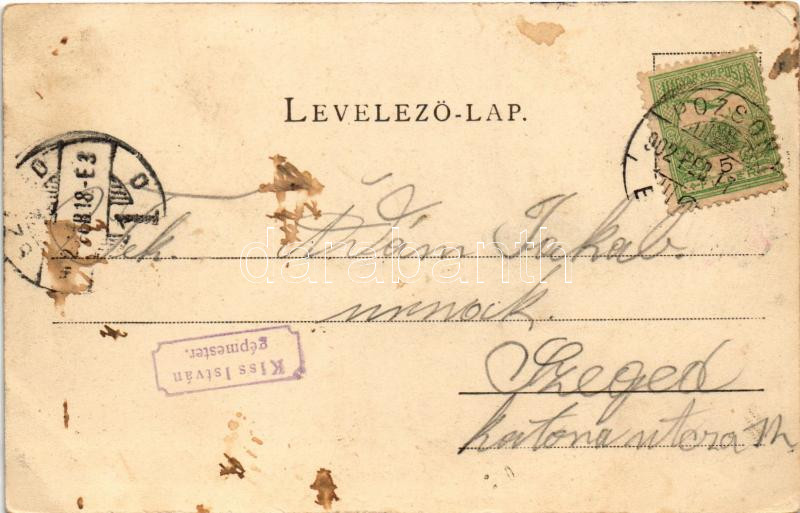 LEVELEZŐ-LAP.
MAGYAR KIR. POSTA
POZSONY
902
5
E
18-E3
Tek. Ádám Jakab
urnak.
Szeged
Katona utcza
Kiss István
gépmester.
darabanth